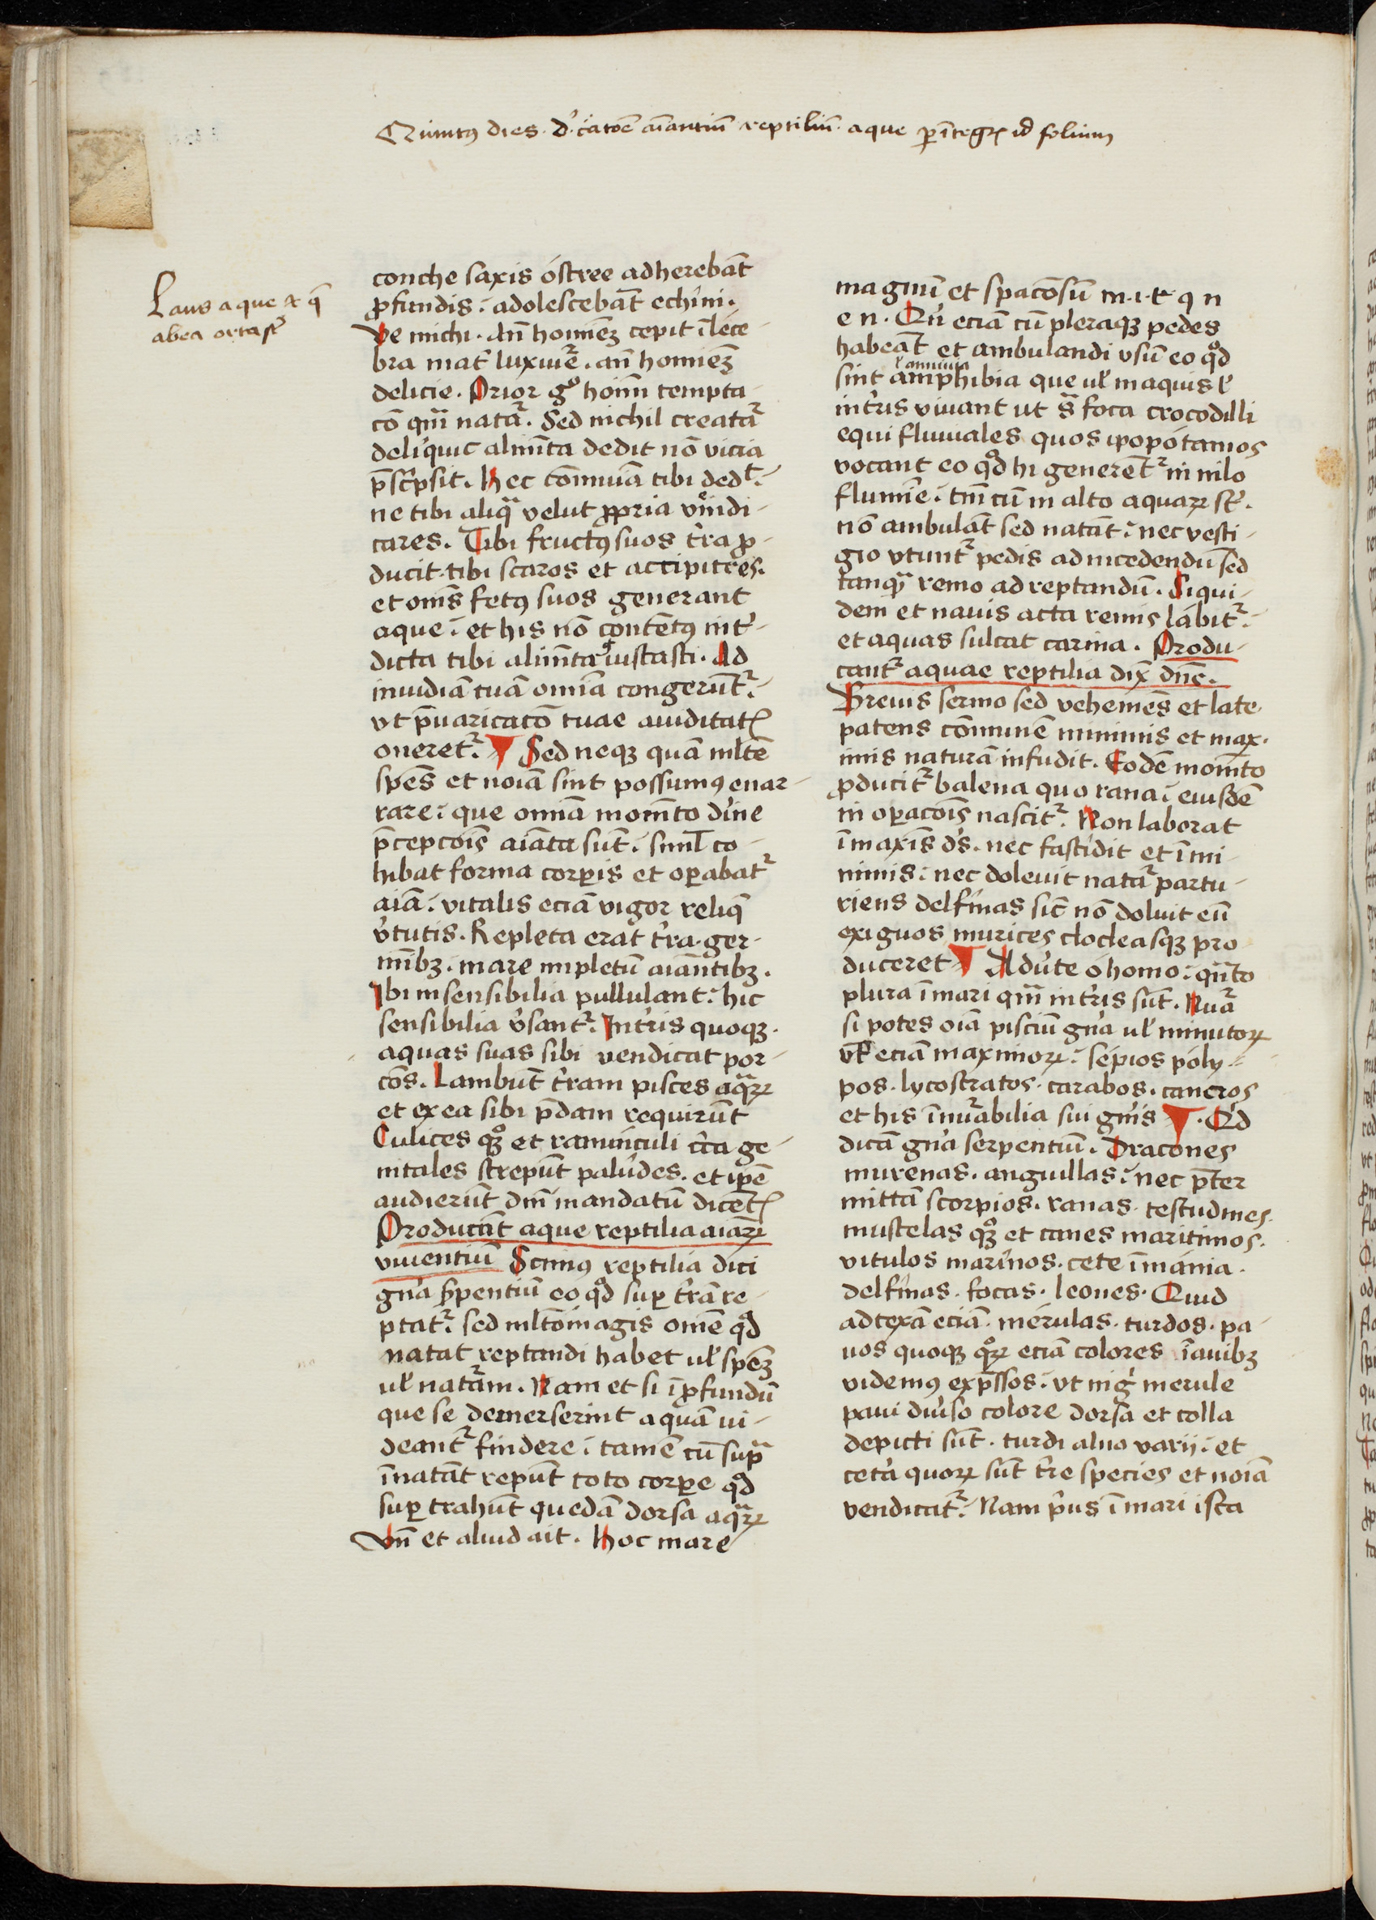 Quintꝰ dies · d' c̄atōe aīantiū reptiliū · aque p̄ integrū id foliū
Laus aque & q̄
ab ea orta sūt
conche saxis ostree adherebāt
ꝓfundis : adolescebāt echini .
Ve michi . An̄ homīeʒ cepit īlece-
bra mat̄ luxurie . an̄ homīeʒ
delicie . Prior gͦ hoīm tempta-
cō qm̄ natᷓ . Sed nichil creatᷓ
deliquit alimēta dedit nō vicia
p̄scͥpsit . Hec cōmuīa tibi dedit :
ne tibi aliqᷓ velut ꝓpria vendi-
cares . Tibi fructꝰ suos t̄ra ꝓ-
ducit · tibi scaros et accipitres .
et om̄s fetꝰ suos generant
aque : et his nō contentꝰ int̄-
dicta tibi alimēta gustasti . Ad
inuidiā tuā omīa congerūtᷓ :
vt p̄uaricacō tuae auiditatꝭ
oneretᷓ : ¶ Sed neqʒ quam m̄ltē
spēs et noīa sint possumꝰ enar-
rare : que omīa momēto diīne
p̄cepcoīs aīata sūt . simul co-
hibat forma corꝑis et oꝑabatᷓ
aīa : vitalis eciā vigor reliqᷓ
v̄tutis . Repleta erat t̄ra · ger-
mībʒ . mare impletū aīantibʒ .
Ibi insensibilia pullulant : hic
sensibilia v̄santᷓ : In t̄ris quoqʒ ·
aquas suas sibi vendicat por-
cōs . Lambūt t̄ram pisces aqᷓꝝ
et ex ea sibi p̄dam requirūt
Culices qʒͦ et ranunculi c̄ca ge-
nitales strepūt paludes . et ip̄e
audierūt dn̄i mandatū dicētꝭ
Producāt aque reptilia aīaꝝ
viuentiū Scimꝰ reptilia dici
gn̄a s̄pentiū eo qͦd suꝑ t̄rā re-
ptatᷓ : sed m̄ltomagis omē qͦd
natat reptandi habet ul̄ spēʒ
ul̄ natᷓam . Nam et si ī ꝓfundū
que se demerserint aquā vi-
deantᷓ findere : tamē cū supᷓ
īnatāt repūt toto corꝑe qͦd
suꝑ trahūt quedā dorsa aqᷓꝝ
Vn̄ et aliud ait . Hoc mare
magnū et spacōsū m · i · t q n
e n · Qn̄ eciā cū pleraqʒ pedes
habeāt et ambulandi vsum eo qͦd
sint amphibia que ul̄ in aquis ul̄
in t̄ris viuant ut s̄t foca crocodilli
equi fluuiales quos ipopotamos
vocant eo qͦd hi generētᷓ in nilo
flumīe : tn̄ cū in alto aquaꝝ st̄ .
nō ambulāt sed natāt : nec vesti-
gio vtuntᷓ pedis ad incedendū sed
tanqᷓ remo ad reptandū . Siqui-
dem et nauis acta remis labitᷓ :
et aquas sulcat carina . Produ-
cantᷓ aquae reptilia dix̄ dn̄s .
Breuis sermo sed vehemēs et late
patens cōmunē minimis et max-
imis naturā infudit . Eodē momēto
ꝓducitᷓ balena quo rana : eiusdē
in oꝑacoīs nascitᷓ . Non laborat
ī maxīs d̄s . nec fastidit et ī mi-
nimis : nec doleuit natᷓ partu-
riens delfinas sic̄ nō doluit cū
exiguos murices clocleasqʒ pro
duceret ¶ Aduīte o homo : qn̄to
plura ī mari qm̄ in t̄ris sūt . Nuᷓa
si potes oīa pisciū gn̄a ul̄ minutoꝝ
vl̄ eciā maximoꝝ : sepios poly-
pos · lycostratos · carabos . cancros
et his īnūabilia sui gn̄is ¶ · Qͥd
dicā gn̄a serpentiū . Dracones
murenas . anguillas : nec p̄ter
mittā scorpios . ranas · testudines .
mustelas qʒͦ et canes maritimos .
vitulos marinos . cete īmania .
delfinas . focas . leones . Quid
adtexā eciā · merulas . turdos . pa-
uos quoqʒ qͦꝝ eciā colores ī auibʒ
videmꝰ exp̄ssos : vt nigͥ merule
paui diuīso colore dorsa et colla
depicti sūt . turdi aluo varij : et
cet̄a quoꝝ sūt t̄re species et noīa
vendicātᷓ : Nam p̄us ī mari ista